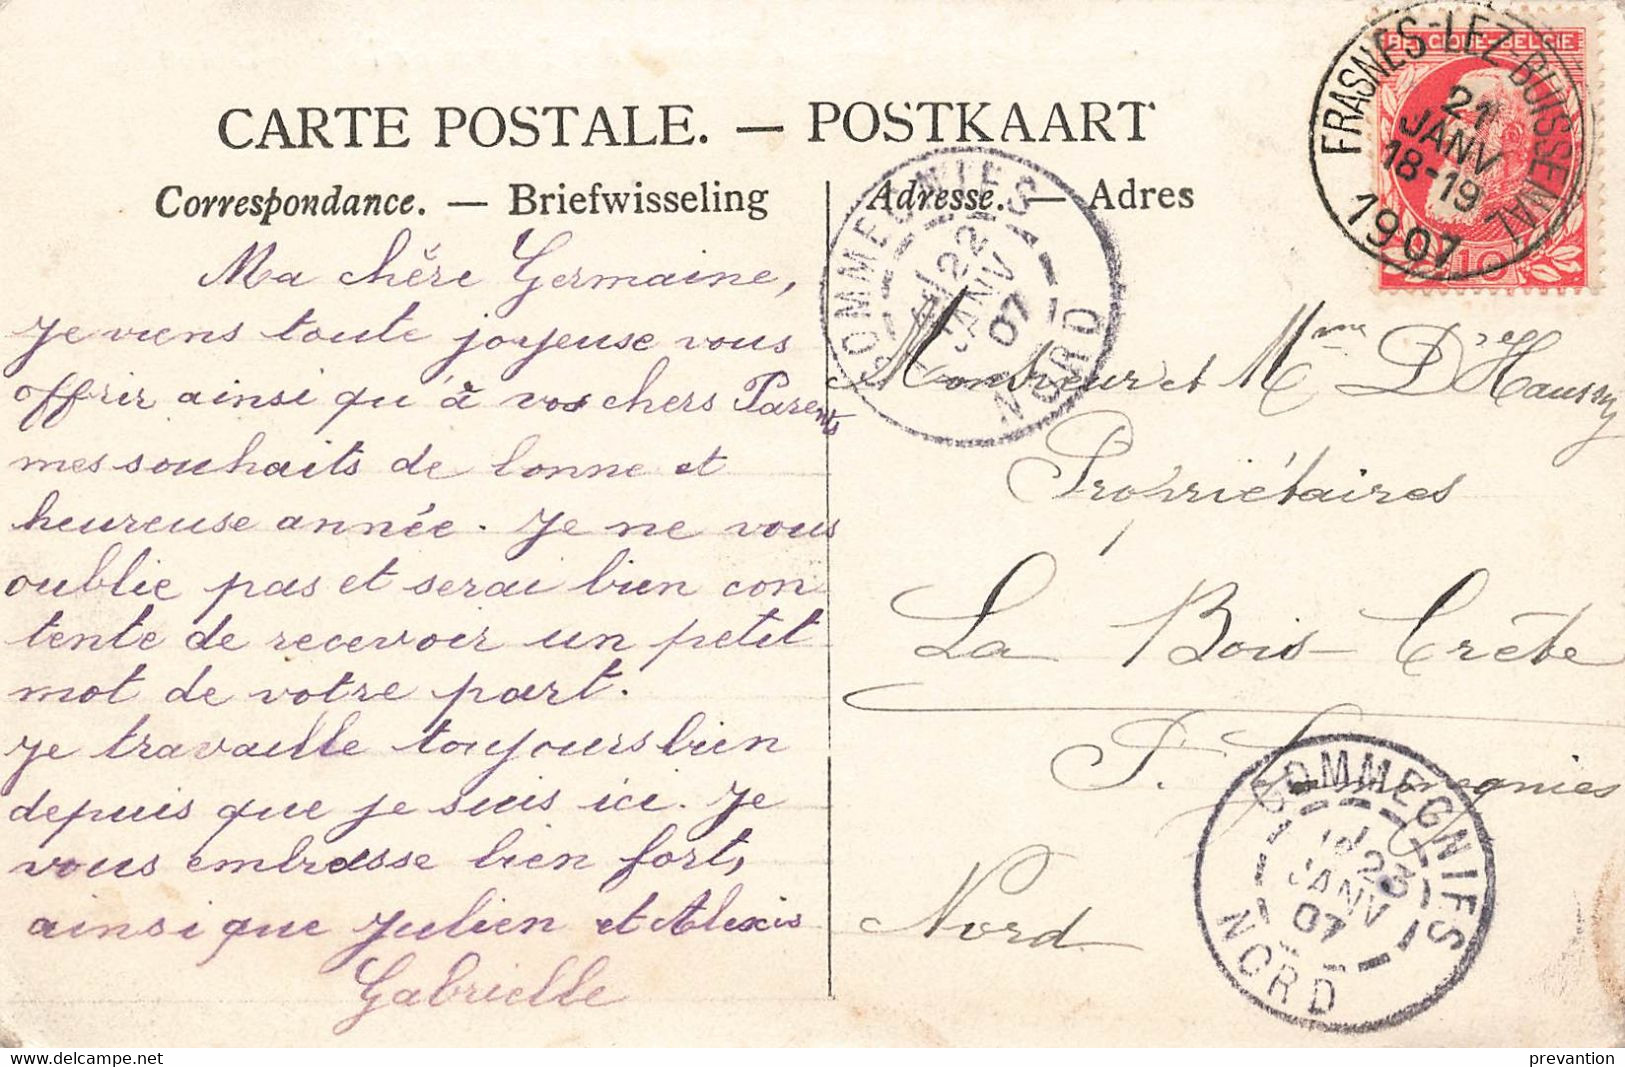 CARTE POSTALE. — POSTKAART
Correspondance. — Briefwisseling
Ma chère Germaine,
Je viens toute joyeuse vous
offrir ainsi qu'à vos chers Parents
mes souhaits de bonne et
heureuse année. Je ne vous
oublie pas et serai bien con
tente de recevoir un petit
mot de votre part.
Je travaille toujours bien
depuis que je suis ici. Je
vous embrasse bien fort,
ainsi que Julien et Alexis
Gabrielle
Adresse. — Adres
Monsieur et Mme D'Haussy
Propriétaires
La Bois-Crête
Nord
BELGIQUE-BELGIE
10
FRASNES-LEZ-BUISSENAL
21
JANV
18-19
1907
GOMMEGNIES
22
JANV
07
NORD
GOMMEGNIES
23
JANV
07
NORD
www.delcampe.net
prevantion